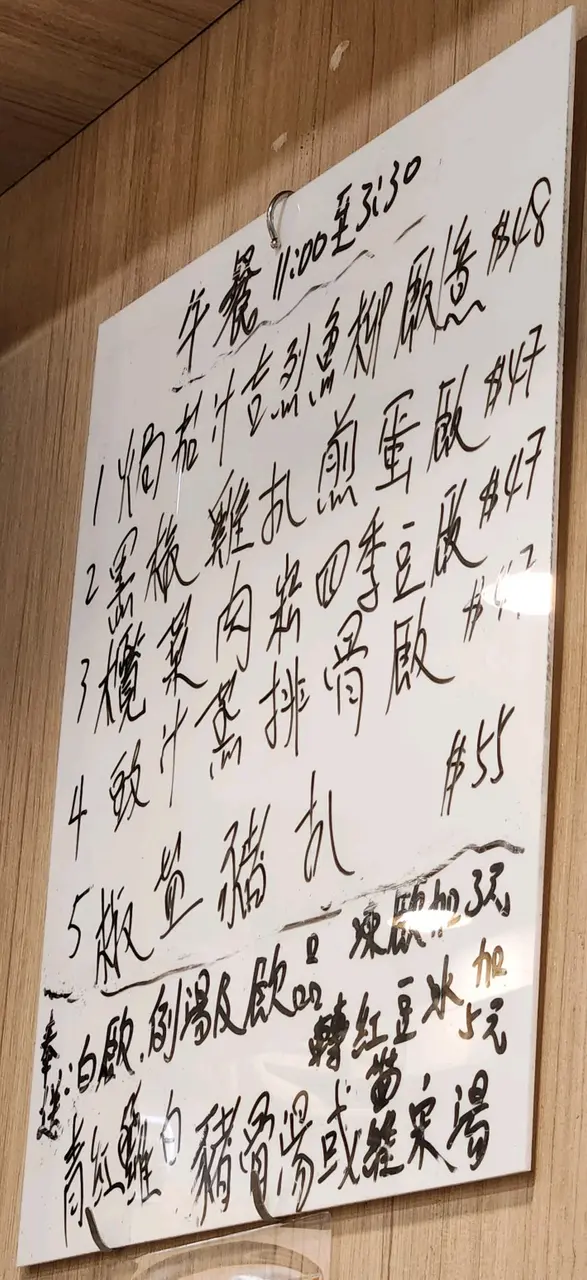 午餐 11:00至3:30
1 焗茄汁吉烈魚柳飯 $48
2 黑椒雞扒煎蛋飯 $47
3 欖菜肉崧四季豆飯 $47
4 豉汁蒸排骨飯 $47
5 椒盐豬扒 $55
奉送:白飯.例湯及飲品 凍飲加3元
轉紅豆冰加5元
青紅蘿白豬骨湯或羅宋湯